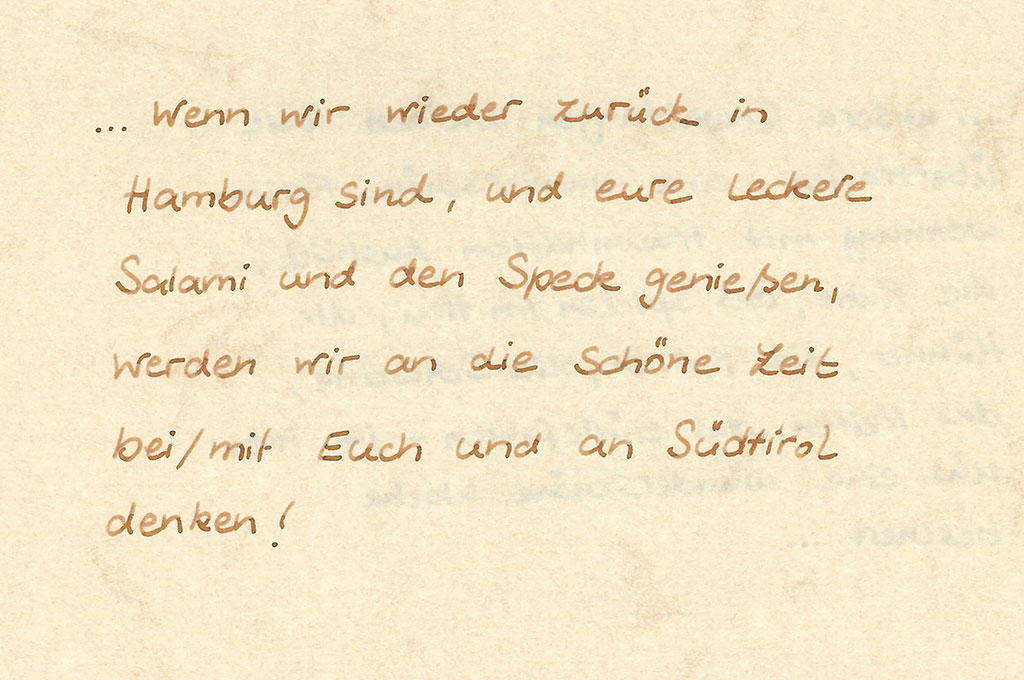 ... Wenn wir wieder zurück in
Hamburg sind, und eure leckere
Salami und den Speck genießen,
werden wir an die schöne Zeit
bei/mit Euch und an Südtirol
denken!